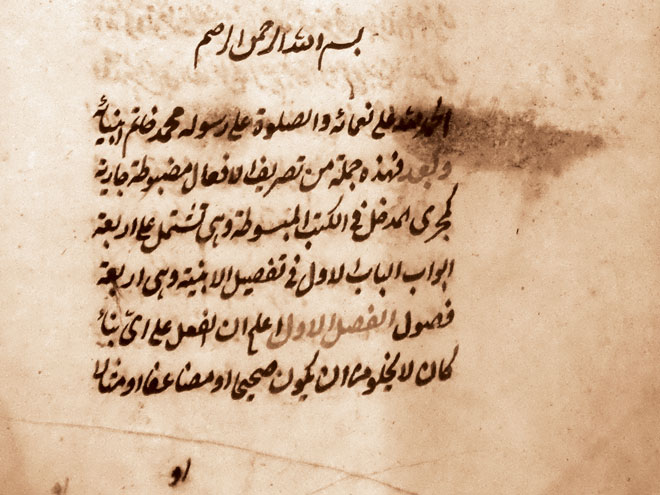 بسم الله الرحمن الرحيم
الحمد لله على نعمائه والصلوة على رسوله محمد خاتم انبيائه
وبعد فهذه جملة من تصريف الافعال مضبوطة جارية
مجرى المدخل فى الكتب المبسوطة وهى تشتمل على اربعة
ابواب الباب الاول فى تفصيل الابنية وهى اربعة
فصول الفصل الاول اعلم ان الفعل على اىّ بناء
كان لا يخلو من ان يكون صحيحا او مضاعفا او مثالا
او